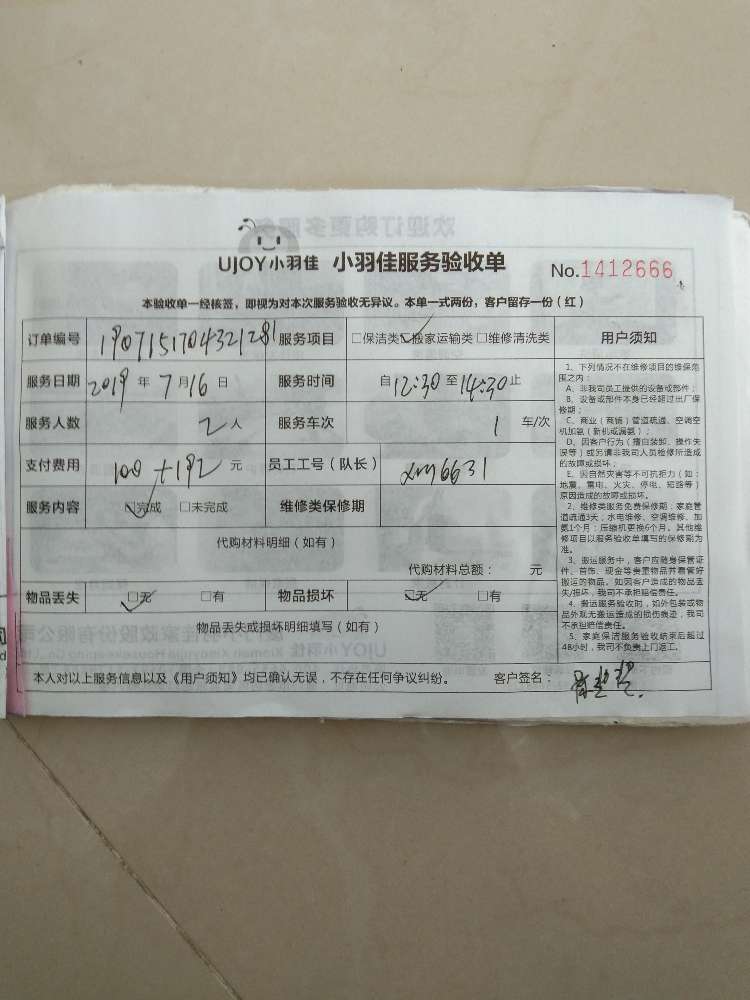 UJOY小羽佳 小羽佳服务验收单 No.1412666
本验收单一经核签，即视为对本次服务验收无异议。本单一式两份，客户留存一份（红）
订单编号 1907151704321281 服务项目 □保洁类☑搬家运输类□维修清洗类
服务日期 2019年7月16日 服务时间 自12:30至14:30止
服务人数 2人 服务车次 1 车/次
支付费用 100+192元 员工工号（队长） xm6631
服务内容 ☑完成 □未完成 维修类保修期
代购材料明细（如有）
代购材料总额： 元
物品丢失 ☑无 □有 物品损坏 ☑无 □有
物品丢失或损坏明细填写（如有）
本人对以上服务信息以及《用户须知》均已确认无误，不存在任何争议纠纷。 客户签名：
用户须知
1、下列情况不在维修项目的维保范
围之内：
A、非我司员工提供的设备或部件；
B、设备或部件本身已经超过出厂保
修期；
C、商业（商铺）管道疏通、空调空
机加氨（新机或漏氨）；
D、因客户行为（擅自装卸、操作失
误等）或另请非我司人员维修所造成
的故障或损坏；
E、因自然灾害等不可抗拒力（如：
地震、雷电、火灾、停电、短路等）
原因造成的故障或损坏。
2、维修类服务免费保修期：家庭管
道疏通3天，水电维修、空调维修、加
氨1个月；压缩机更换6个月。其他维
修项目以服务验收单填写的保修期为
准。
3、搬运服务中，客户应随身保管证
件、首饰、现金等贵重物品并看管好
搬运的物品。如因客户造成的物品丢
失/损坏，我司不承担赔偿责任。
4、搬运服务验收时，如外包装或物
品外观无搬运造成的损伤痕迹，我司
不承担赔偿责任。
5、家庭保洁服务验收结束后超过
48小时，我司不负责上门返工。